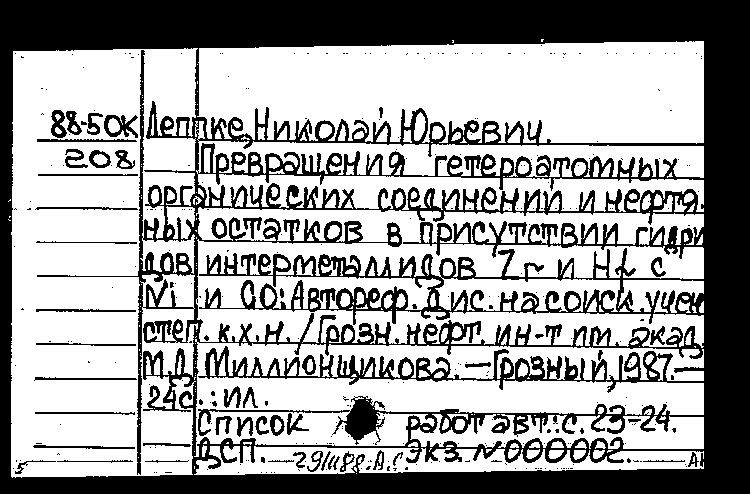 88-50К Деппке, Николай Юрьевич.
208 Превращения гетероатомных
органических соединений и нефтя-
ных остатков в присутствии гидри
дов интерметаллидов Zr и Hf с
Ni и CO: Автореф. дис. на соиск. учен
степ. к.х.н. / Грозн. нефт. ин-т им. акад.
М.Д. Миллионщикова. — Грозный, 1987. —
24с. : ил.
Список работ авт.: с. 23-24.
ДСП. Экз. N000002.
5